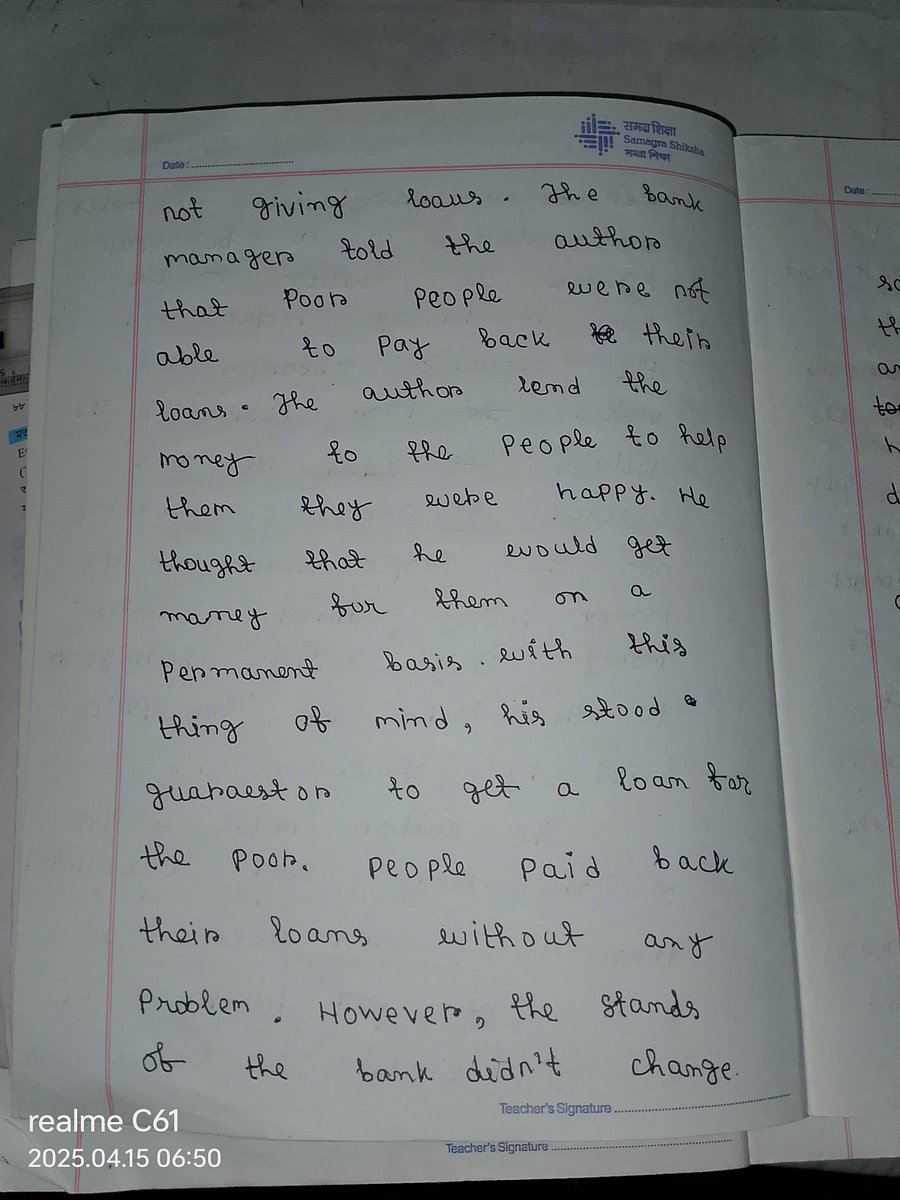 समग्र शिक्षा
Samagra Shiksha
Date :
Date :
not giving loans. The bank
manager told the author
that poor people were not
able to pay back their
loans. The author lend the
money to the people to help
them they were happy. He
thought that he would get
maney for them on a
permanent basis. with this
thing of mind, his stood
guaraestor to get a loan for
the poor. people paid back
their loans without any
problem. However, the stands
of the bank didn't change.
Teacher's Signature
Teacher's Signature
realme C61
2025.04.15 06:50